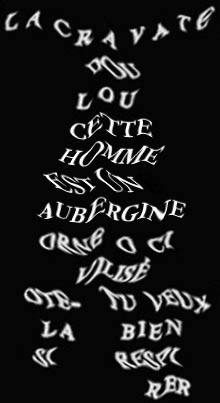 LA CRAVATE
DOU
LOU
CETTE
HOMME
EST UN
AUBERGINE
ORNE O CI
VILISÉ
OTE- TU VEUX
LA BIEN
SI RESPI
RER